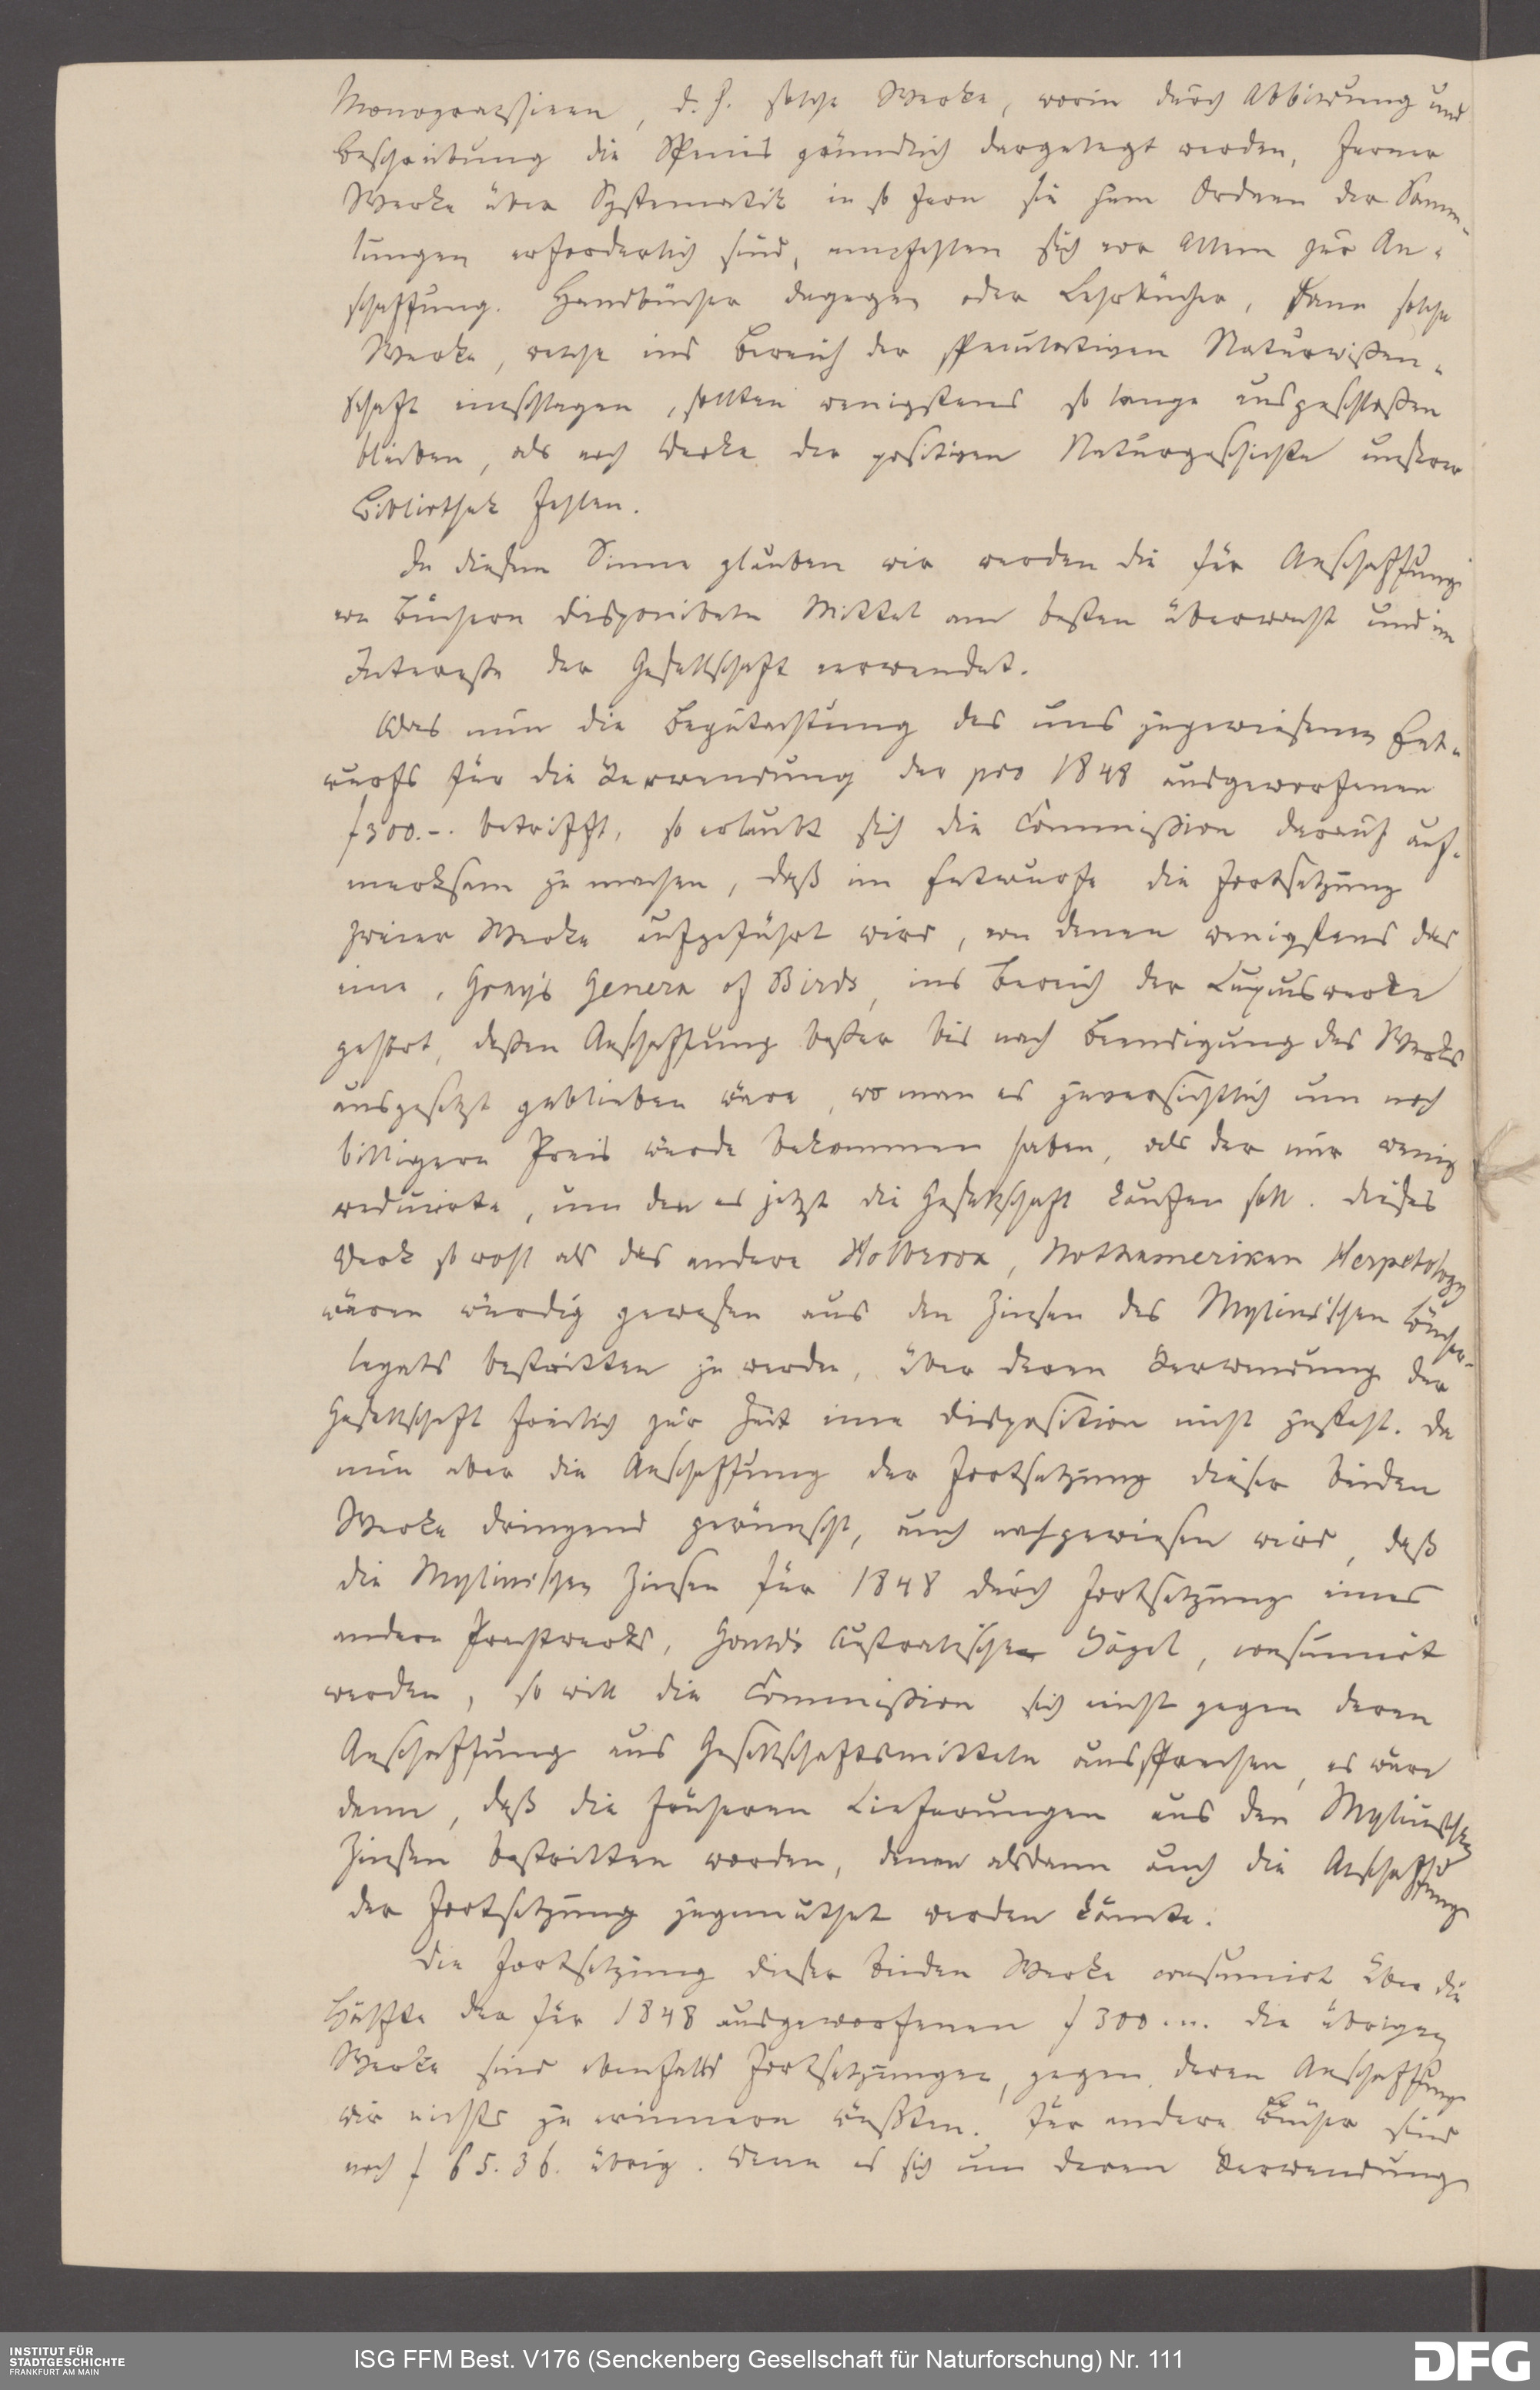 Monographieen, d. h. solche Werke, worin durch Abbildung und
Beschreibung die Species gründlich dargelegt werden, ferner
Werke über Systematik in so fern sie zum Ordnen der Samm-
lungen erforderlich sind, empfehlen sich vor Allem zur An-
schaffung. Handbücher dagegen oder Lehrbücher, dann solche
Werke, welche ins Bereich der speculativen Naturwißen-
schaft einschlagen, sollten wenigstens so lange ausgeschloßen
bleiben, als noch Werke der positiven Naturgeschichte unserer
Bibliothek fehlen.
In diesem Sinne glauben wir werden die für Anschaffung
von Büchern disponibeln Mittel am besten überwacht und im
Intereße der Gesellschaft verwendet.
Was nun die Begutachtung des uns zugewiesenen Ent-
wurfs für die Verwendung der pro 1848 ausgeworfenen
f 300.-. betrifft, so erlaubt sich die Commißion darauf auf-
merksam zu machen, daß im Entwurfe die Fortsetzung
zweier Werke aufgeführt wird, von denen wenigstens das
eine, Gray's Genera of Birds, ins Bereich der Luxuswerke
gehört, deßen Anschaffung beßer bis nach Beendigung des Werks
ausgesetzt geblieben wäre, wo man es zuversichtlich um noch
billigern Preis würde bekommen haben, als der nur wenig
reducirte, um den es jetzt die Gesellschaft kaufen soll. Dieses
Werk so wohl als das andere Holbrook, Nothamerikan Herpetology
wären würdig gewesen aus den Zinsen des Mylius'schen Bücher-
legats bestritten zu werden, über deren Verwendung der
Gesellschaft freilich zur Zeit eine Disposition nicht zusteht. Da
nun aber die Anschaffung der Fortsetzung dieser beiden
Werke dringend gewünscht, auch nachgewiesen wird, daß
die Mylius'schen Zinsen für 1848 durch Fortsetzung eines
andern Prachtwerks, Gould's Australischer Vögel, consumirt
werden, so will die Commißion sich nicht gegen deren
Anschaffung aus Gesellschaftsmitteln aussprechen, es wäre
denn, daß die früheren Lieferungen aus den Mylius'schen
Zinsen bestritten worden, denen alsdann auch die Anschaffung
der Fortsetzung zugemuthet werden könnte.
Die Fortsetzung dieser beiden Werke consumirt über die
Hälfte der für 1848 ausgeworfenen f 300.-. Die übrigen
Werke sind ebenfalls Fortsetzungen, gegen deren Anschaffung
wir nichts zu erinnern wüßten. Für andere Bücher sind
noch f 65.36. übrig. Wenn es sich um deren Verwendung
INSTITUT FÜR
STADTGESCHICHTE
FRANKFURT AM MAIN
ISG FFM Best. V176 (Senckenberg Gesellschaft für Naturforschung) Nr. 111
DFG